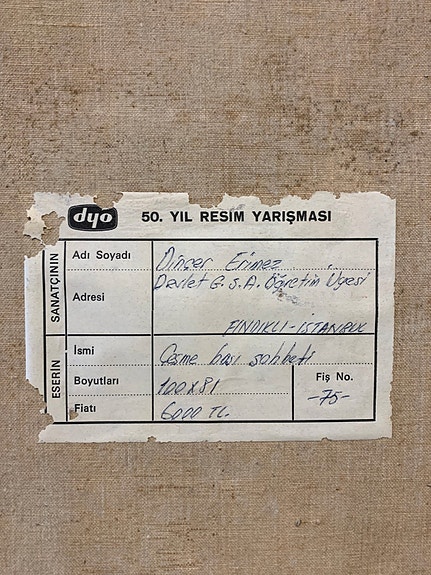 dyo 50. YIL RESİM YARIŞMASI
SANATÇININ
Adı Soyadı Dinçer Erimez
Adresi Devlet G.S.A. Öğretim Üyesi
FINDIKLI-İSTANBUL
ESERİN
İsmi Çeşme başı sohbeti
Boyutları 100x81
Fiatı 6000 TL.
Fiş No.
-75-